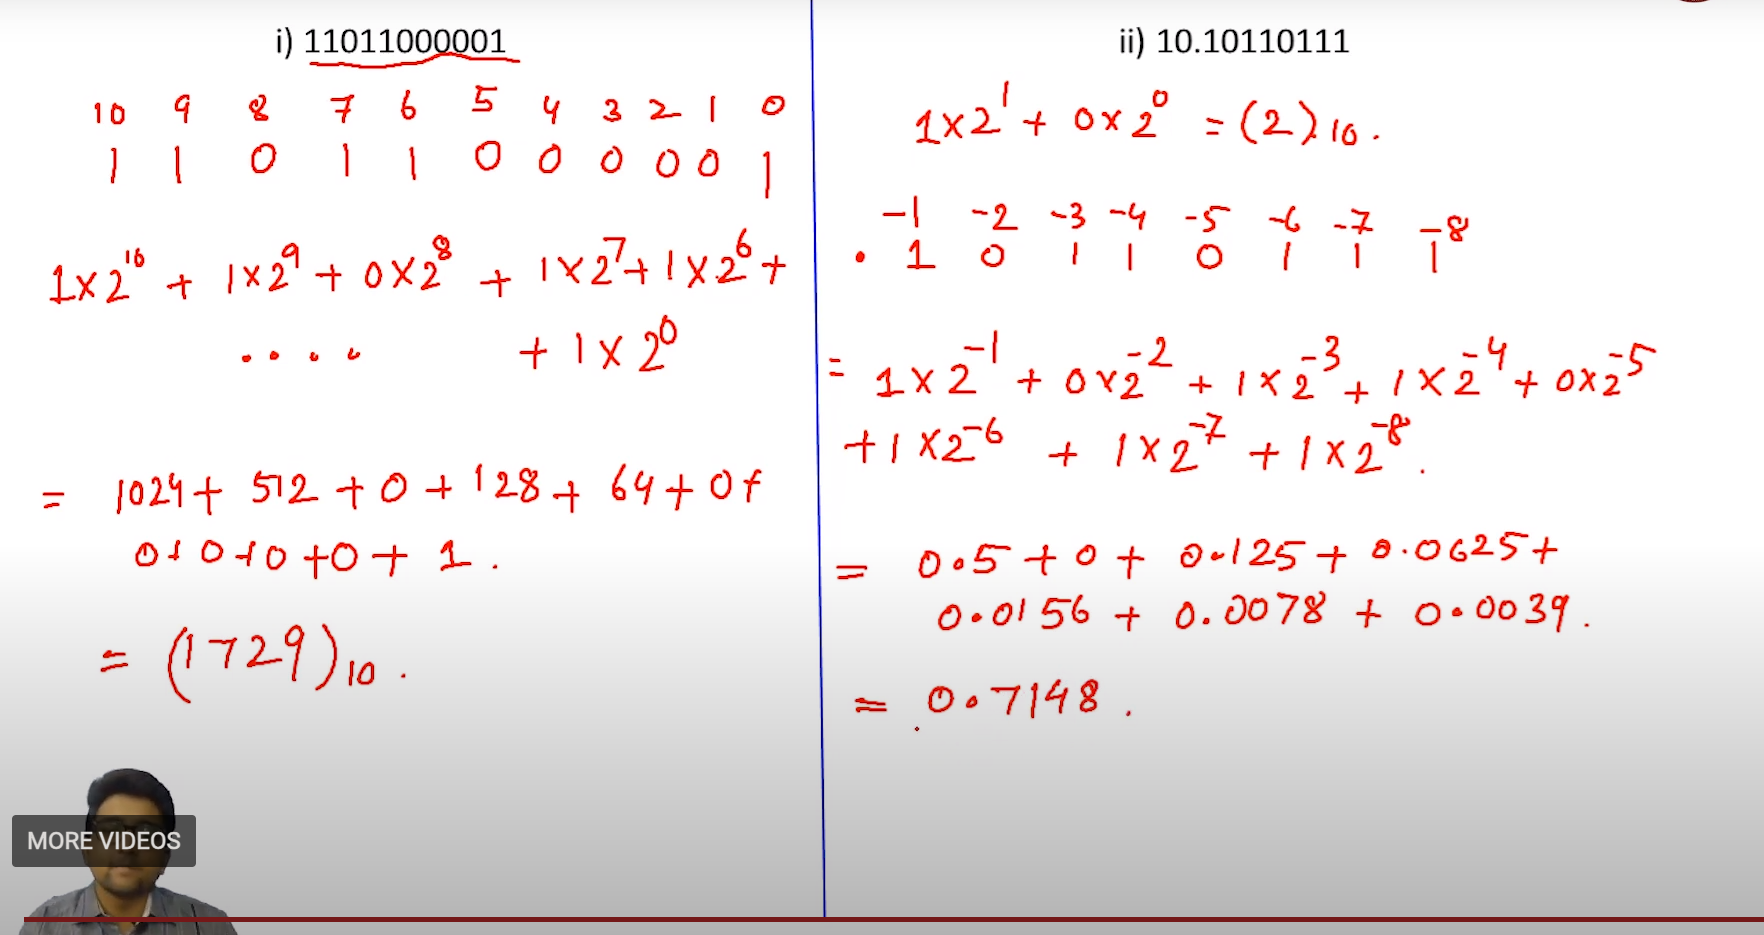 i) 11011000001
10 9 8 7 6 5 4 3 2 1 0
1 1 0 1 1 0 0 0 0 0 1
1×2¹⁰ + 1×2⁹ + 0×2⁸ + 1×2⁷ + 1×2⁶ +
.... + 1×2⁰
= 1024 + 512 + 0 + 128 + 64 + 0 +
0+0+0+0+ 1.
= (1729)₁₀.
MORE VIDEOS
ii) 10.10110111
1×2¹ + 0×2⁰ = (2)₁₀.
-1 -2 -3 -4 -5 -6 -7 -8
. 1 0 1 1 0 1 1 1
= 1×2⁻¹ + 0×2⁻² + 1×2⁻³ + 1×2⁻⁴ + 0×2⁻⁵
+1×2⁻⁶ + 1×2⁻⁷ + 1×2⁻⁸.
= 0.5 + 0 + 0.125 + 0.0625 +
0.0156 + 0.0078 + 0.0039.
= 0.7148.